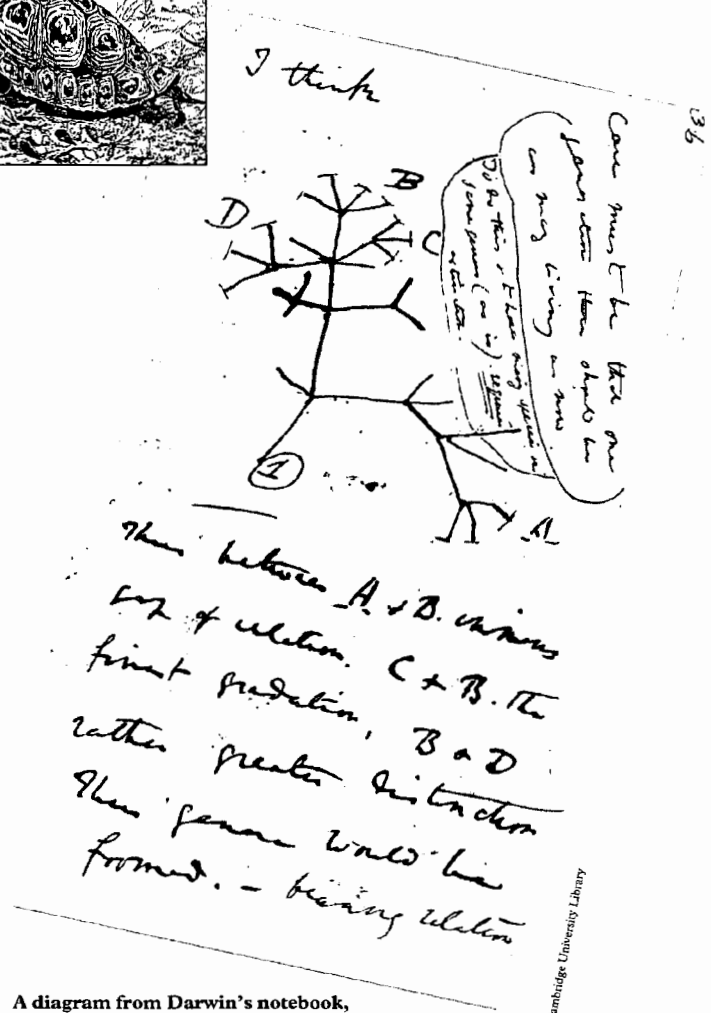 I think
36
Case must be that one
generation then should be
as many living as now
To do this & to have many species in
same genus (as is) requires
extinction.
D
B
C
1
A
Thus between A & B. immense
gap of relation. C & B. The
finest gradation, B & D
rather greater distinction
Thus genera would be
formed. — bearing relation
ambridge University Library
A diagram from Darwin's notebook,